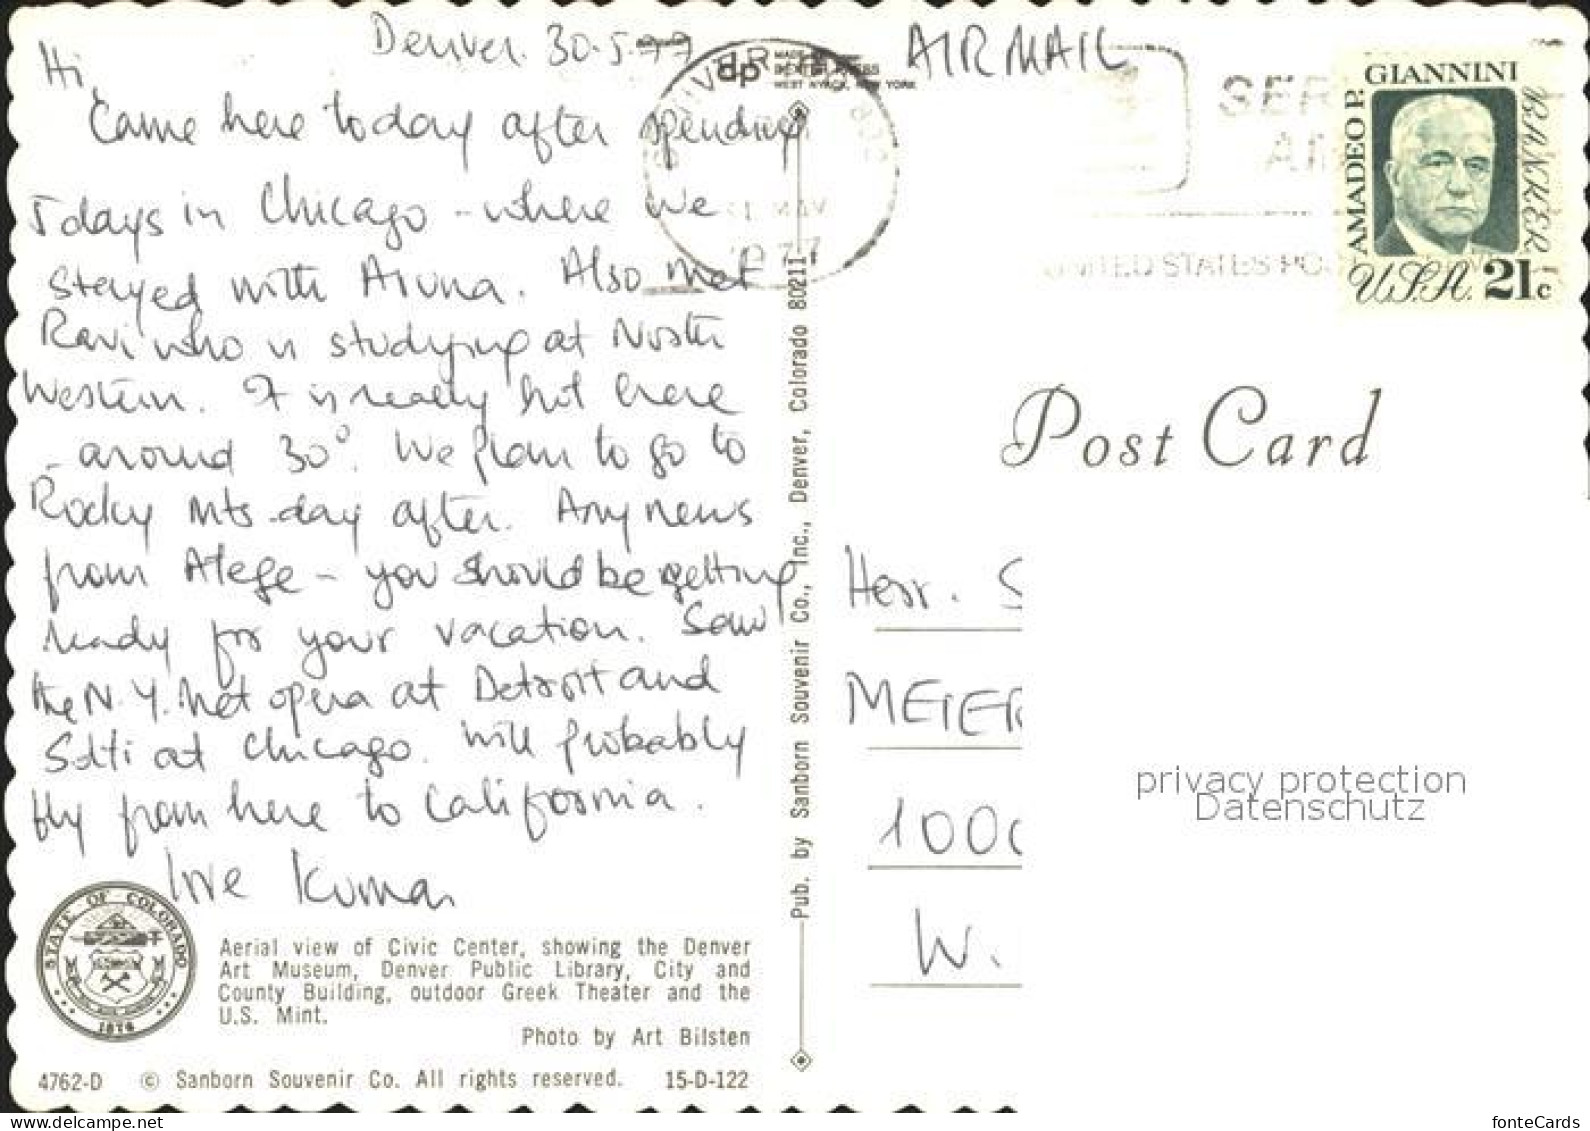 Denver. 30.5.77
AIR MAIL
Hi,
Came here today after spending
5 days in Chicago - where we
stayed with Aruna. Also met
Ravi who is studying at North
Western. It is really hot here
- around 30°. We plan to go to
Rocky Mts. day after. Any news
from - you should be getting
ready for your vacation. Saw
the N.Y. Met opera at Detroit and
Solti at Chicago. Will probably
fly from here to California.
love Kumar
MADE BY
dp DEXTER PRESS
WEST NYACK, NEW YORK
DENVER
31 MAY
1977
UNITED STATES PO
AMADEO P. GIANNINI BANKER
U.S.A. 21c
Post Card
Herr. S
MEIER
1000
W.
privacy protection
Datenschutz
Pub. by Sanborn Souvenir Co., Inc., Denver, Colorado 80211
STATE OF COLORADO
1876
Aerial view of Civic Center, showing the Denver
Art Museum, Denver Public Library, City and
County Building, outdoor Greek Theater and the
U.S. Mint.
Photo by Art Bilsten
4762-D © Sanborn Souvenir Co. All rights reserved. 15-D-122
www.delcampe.net
fonteCards